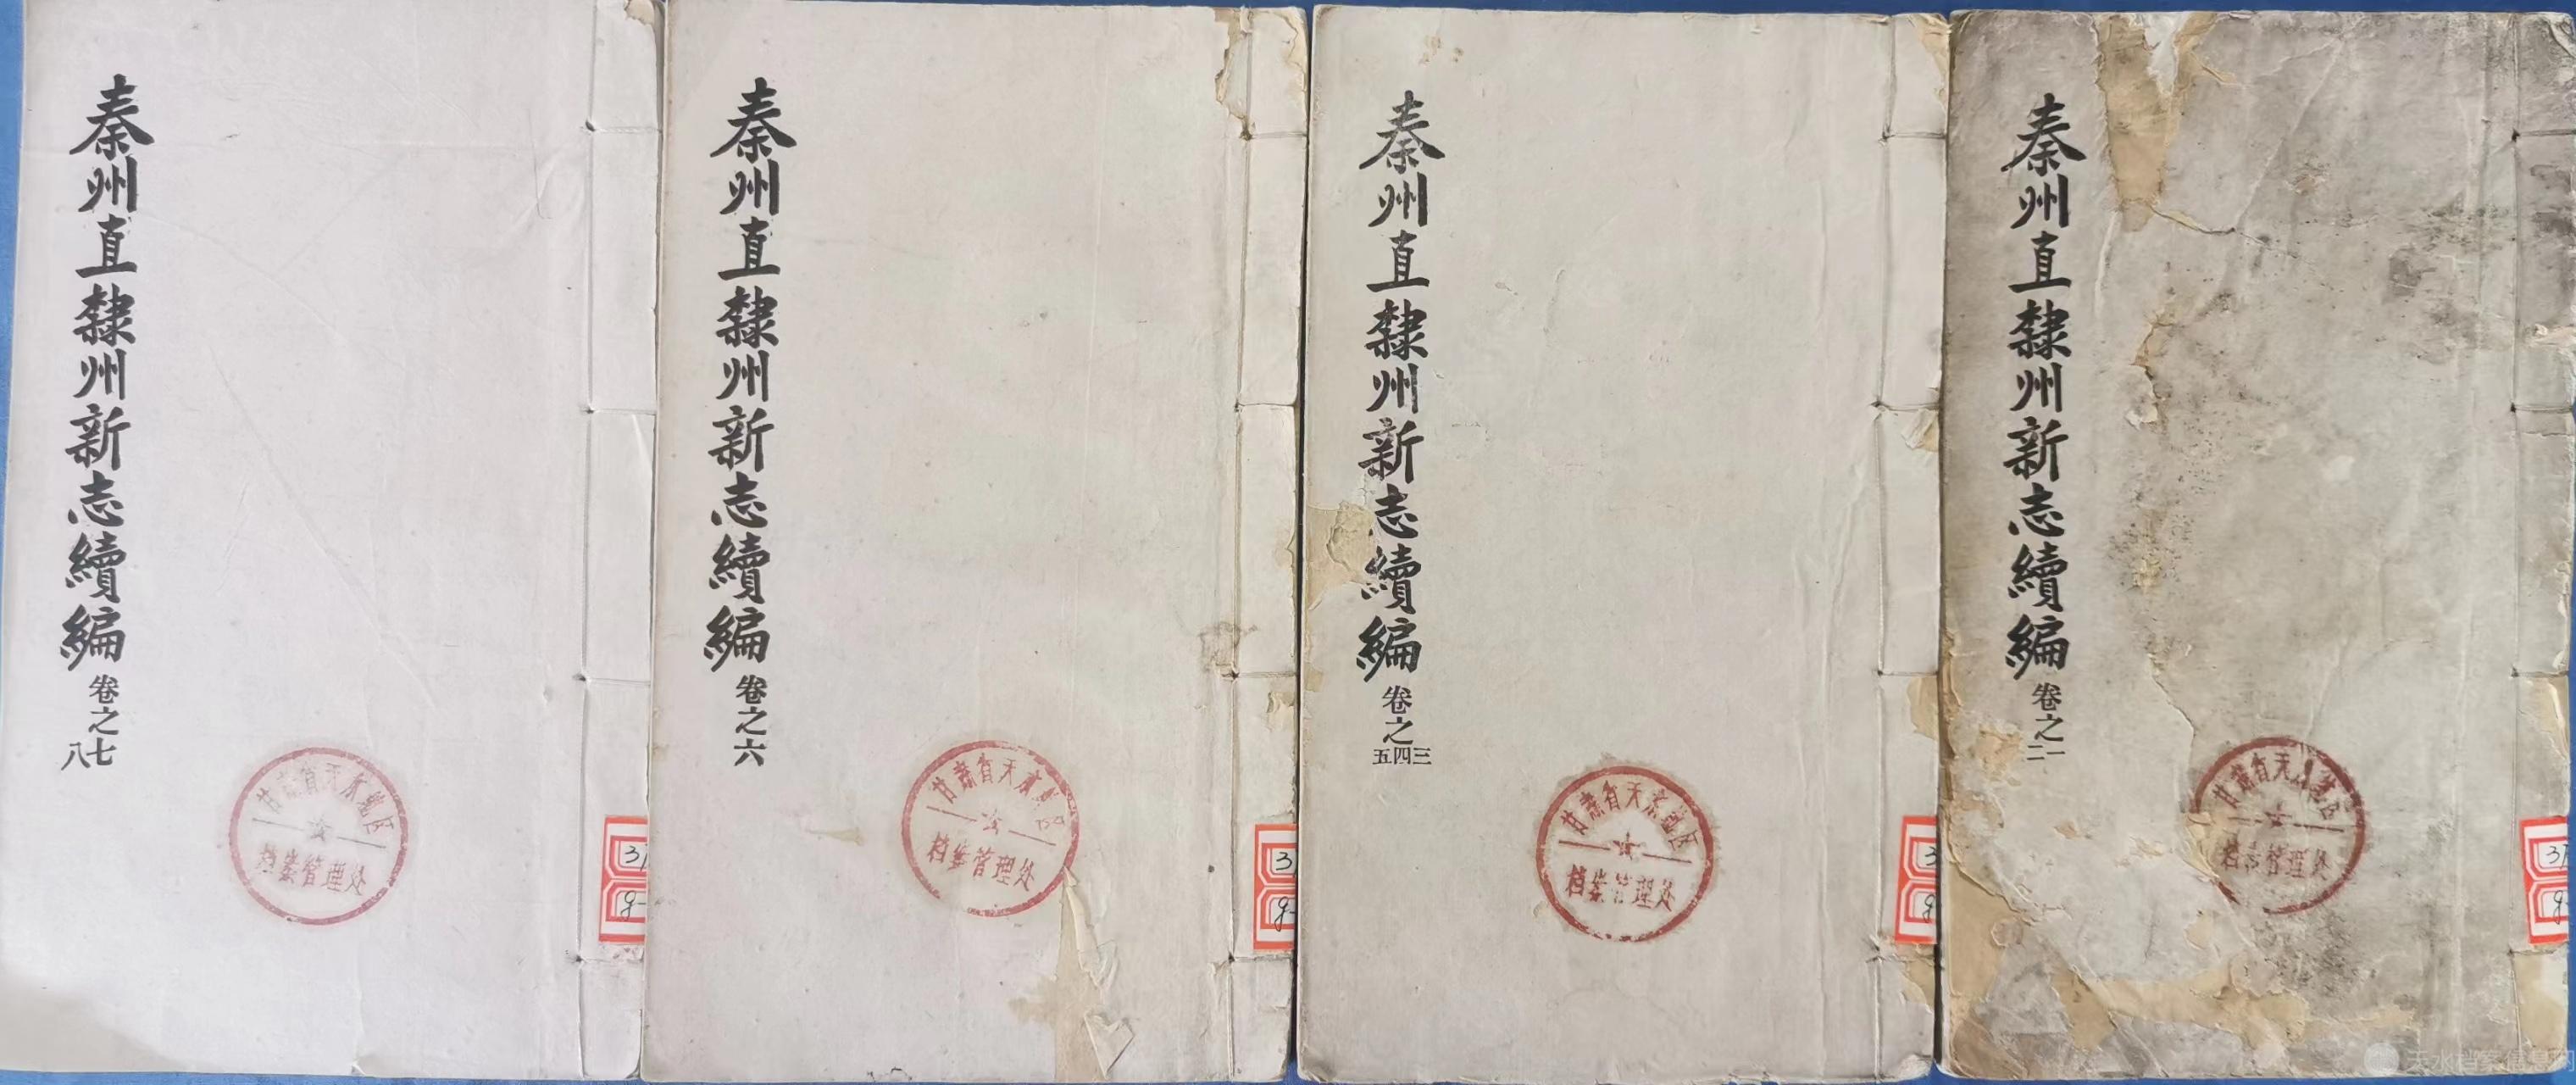 秦州直隸州新志續編 卷之一二
甘肃省天水地区
档案管理处
31
9-
秦州直隸州新志續編 卷之三四五
甘肃省天水地区
档案管理处
3
9
秦州直隸州新志續編 卷之六
甘肃省天水地区
档案管理处
3
9-
秦州直隸州新志續編 卷之七八
甘肃省天水地区
档案管理处
31
9-
天水档案信息网